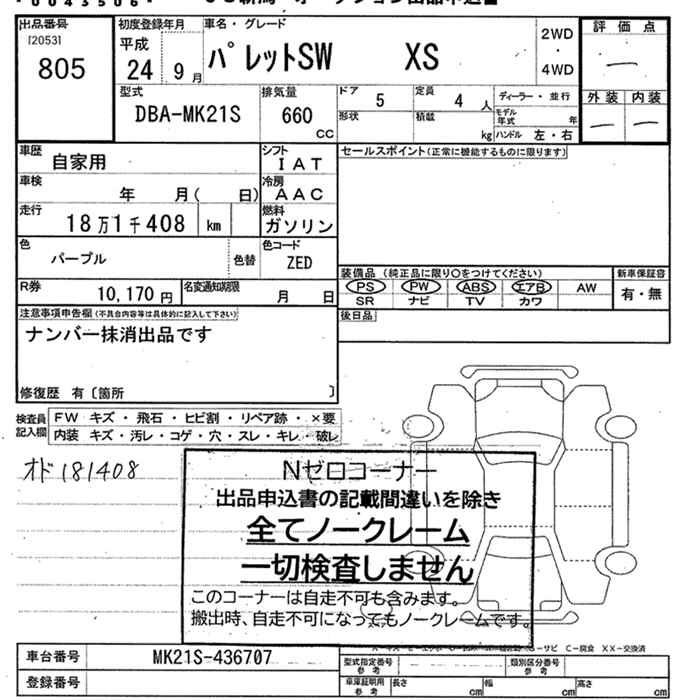 出品番号
[2053]
805
初度登録年月
平成
24 9 月
車名・グレード
パレットSW XS
2WD
・
4WD
評価点
外装 内装
型式
DBA-MK21S
排気量
660
cc
ドア
5
定員
4 人
ディーラー・並行
形状
積載
kg
モデル年式 年
ハンドル 左・右
車歴
自家用
シフト
IAT
セールスポイント(正常に機能するものに限ります)
車検
年 月( 日)
冷房
AAC
走行
18万1千408 km
燃料
ガソリン
色
パープル
色替
色コード
ZED
R券
10,170 円
名変通知期限
月 日
装備品(純正品に限り〇をつけてください)
新車保証書
PS PW ABS エアB AW
有・無
SR ナビ TV カワ
注意事項申告欄(不具合内容等は具体的に記入して下さい)
後日品
ナンバー抹消出品です
修復歴 有〔箇所 〕
検査員記入欄
FW キズ・飛石・ヒビ割・リペア跡・×要
内装 キズ・汚レ・コゲ・穴・スレ・キレ・破レ
オド181408
Nゼロコーナー
出品申込書の記載間違いを除き
全てノークレーム
一切検査しません
このコーナーは自走不可も含みます。
搬出時、自走不可になってもノークレームです。
S-サビ C-腐食 XX-交換済
車台番号
MK21S-436707
型式指定番号
参考
類別区分番号
参考
登録番号
車庫証明用
参考
長さ cm
幅 cm
高さ cm